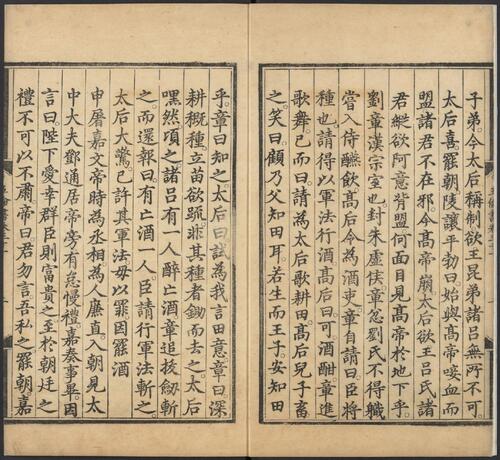 子弟。今太后稱制欲王昆弟諸呂無所不可。
太后喜罷朝陵讓平勃曰始與髙帝唼血而
盟諸君不在邪今髙帝崩太后欲王呂氏諸
君縱欲阿意背盟何面目見髙帝於地下乎。
劉章漢宗室也封朱虛侯。章忿劉氏不得軄
嘗入侍醼飲髙后令為酒吏。章自請曰臣將
種也請得以軍法行酒髙后曰可酒酣章進
歌舞。已而曰請為太后歌耕田髙后兒子畜
之。笑曰顧乃父知田耳若生而王子。安知田
乎。章曰知之。太后曰試為我言田意章曰深
耕穊種立苗欲疏。非其種者鋤而去之。太后
嘿然頃之諸呂有一人醉亡酒章追拔劒斬
之。而還報曰有亡酒一人臣請行軍法斬之
太后大驚已許其軍法毋以罪因罷酒
申屠嘉文帝時為丞相為人廉直入朝見太
中大夫鄧通居帝旁有怠慢禮嘉奏事畢。因
言曰。陛下愛幸群臣則富貴之至於朝廷之
禮不可以不肅。帝曰君勿言。吾私之罷朝。嘉